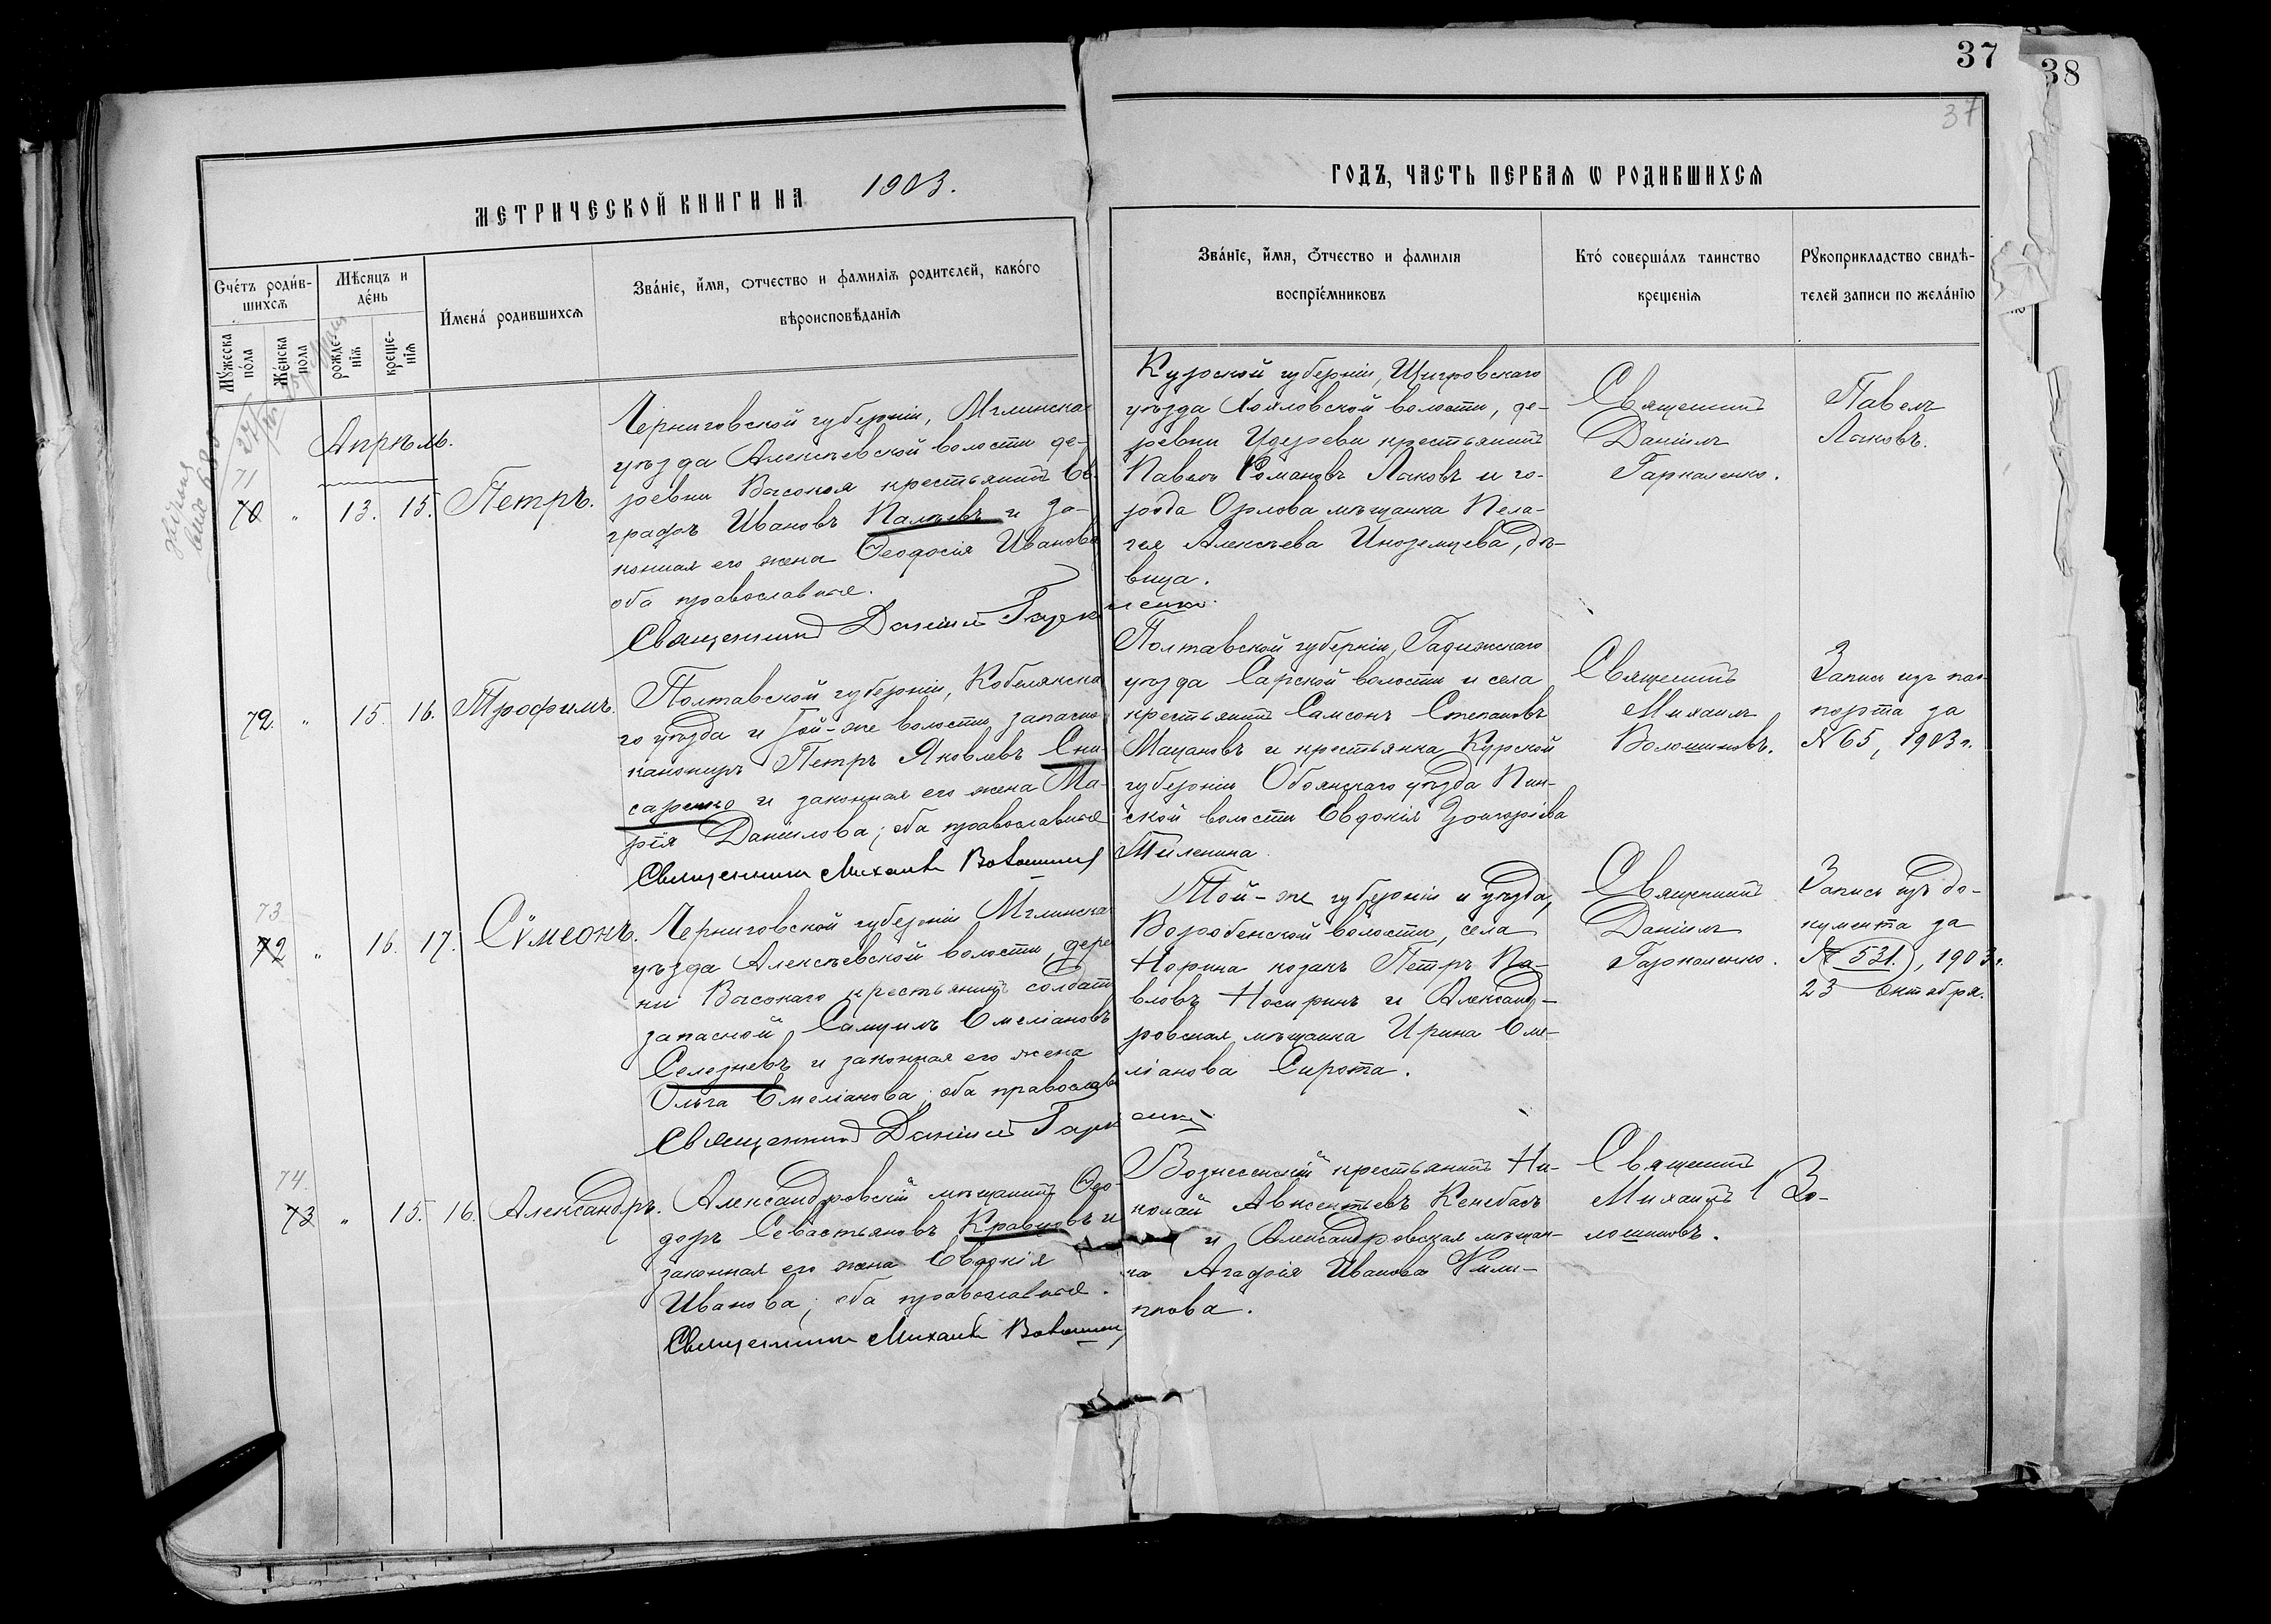 37
38
37
МЕТРИЧЕСКОЙ КНИГИ НА 1903.
ГОДЪ, ЧАСТЬ ПЕРВАЯ Ѡ РОДИВШИХСЯ
Счетъ родив-
шихся
Мужеска пола
Женска пола
Мѣсяцъ и день
рожде-
нія
креще-
нія
Имена родившихся
Званіе, имя, отчество и фамилія родителей, какого
вѣроисповѣданія
Званіе, имя, отчество и фамилія
воспріемниковъ
Кто совершалъ таинство
крещенія
Рукоприкладство свидѣ-
телей записи по желанію
Апрѣль.
71
70 " 13. 15. Петръ.
Черниговской губерніи, Мглинска
уѣзда Алексѣевской волости де-
ревни Высокая крестьянинъ Ев-
графъ Ивановъ Палѣевъ и за-
конная его жена Ѳеодосія Иванова
оба православные.
Священникъ Даніилъ Гарка
ленко.
Курской губерніи, Щигровскаго
уѣзда Хохловской волости, де-
ревни крестьянинъ
Павелъ Романовъ Лаковъ и го-
рода Орлова мѣщанка Пела-
гея Алексѣева Иноземцева, дѣ-
вица.
Священникъ
Даніилъ
Гаркаленко.
Павелъ
Лаковъ.
72. " 15. 16. Трофимъ.
Полтавской губерніи, Кобелякска
го уѣзда и той-же волости, запасно
канониръ Петръ Яковлевъ Сни-
саренко и законная его жена Ма-
рія Даніилова; оба православные
Священникъ Михаилъ Волошинов
Полтавской губерніи, Гадяжскаго
уѣзда Сарской волости и села
крестьянинъ Самсонъ Степановъ
Мацановъ и крестьянка Курской
губерніи Обоянскаго уѣзда Пин-
ской волости Евдокія Григоріева
Тиленина.
Священникъ
Михаилъ
Волошиновъ.
Запись изъ пас-
порта за
№ 65, 1903 г.
73
72 " 16. 17. Сѵмеонъ.
Черниговской губерніи Мглинска
уѣзда Алексѣевской волости, дерев
ни Высокаго крестьянинъ солдатъ
запасной Самуилъ Емеліановъ
Селезневъ и законная его жена
Ольга Емеліанова; оба православ
Священникъ Даніилъ Гарка
енко
Той-же губерніи и уѣзда,
Воробенской волости, села
Норина козакъ Петръ Па-
вловъ Носиринъ и Александ-
ровская мѣщанка Ирина Оме-
ліанова Сирота.
Священникъ
Даніилъ
Гаркаленко.
Запись изъ до-
кумента за
№ 531., 1903 г.
23 октября.
74.
73 " 15. 16. Александръ.
Александровскій мѣщанинъ Ѳео-
доръ Севастьяновъ Кравцовъ и
законная его жена Евдокія
Иванова; оба православные.
Священникъ Михаилъ Волошинов
Вознесенскій крестьянинъ Ни-
колай Авксентьевъ Кенебасъ
и Александровская мѣщан-
ка Агафія Иванова Фили-
ппова.
Священникъ
Михаилъ Во-
лошиновъ.